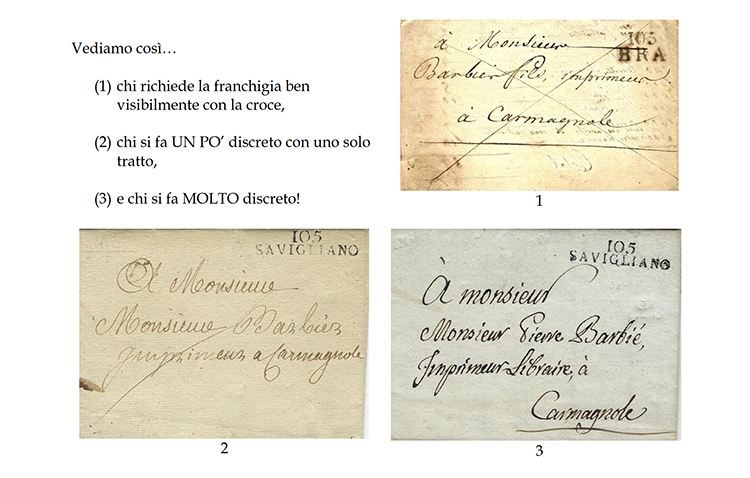 Vediamo così…
(1) chi richiede la franchigia ben
visibilmente con la croce,
(2) chi si fa UN PO’ discreto con uno solo
tratto,
(3) e chi si fa MOLTO discreto!
105
BRA
à Monsieur
Barbier fils, imprimeur
à Carmagnole
1
105
SAVIGLIANO
A Monsieur
Monsieur Barbier
Imprimeur a Carmagnole
2
105
SAVIGLIANO
À monsieur
Monsieur Pierre Barbié,
Imprimeur Libraire, à
Carmagnole
3